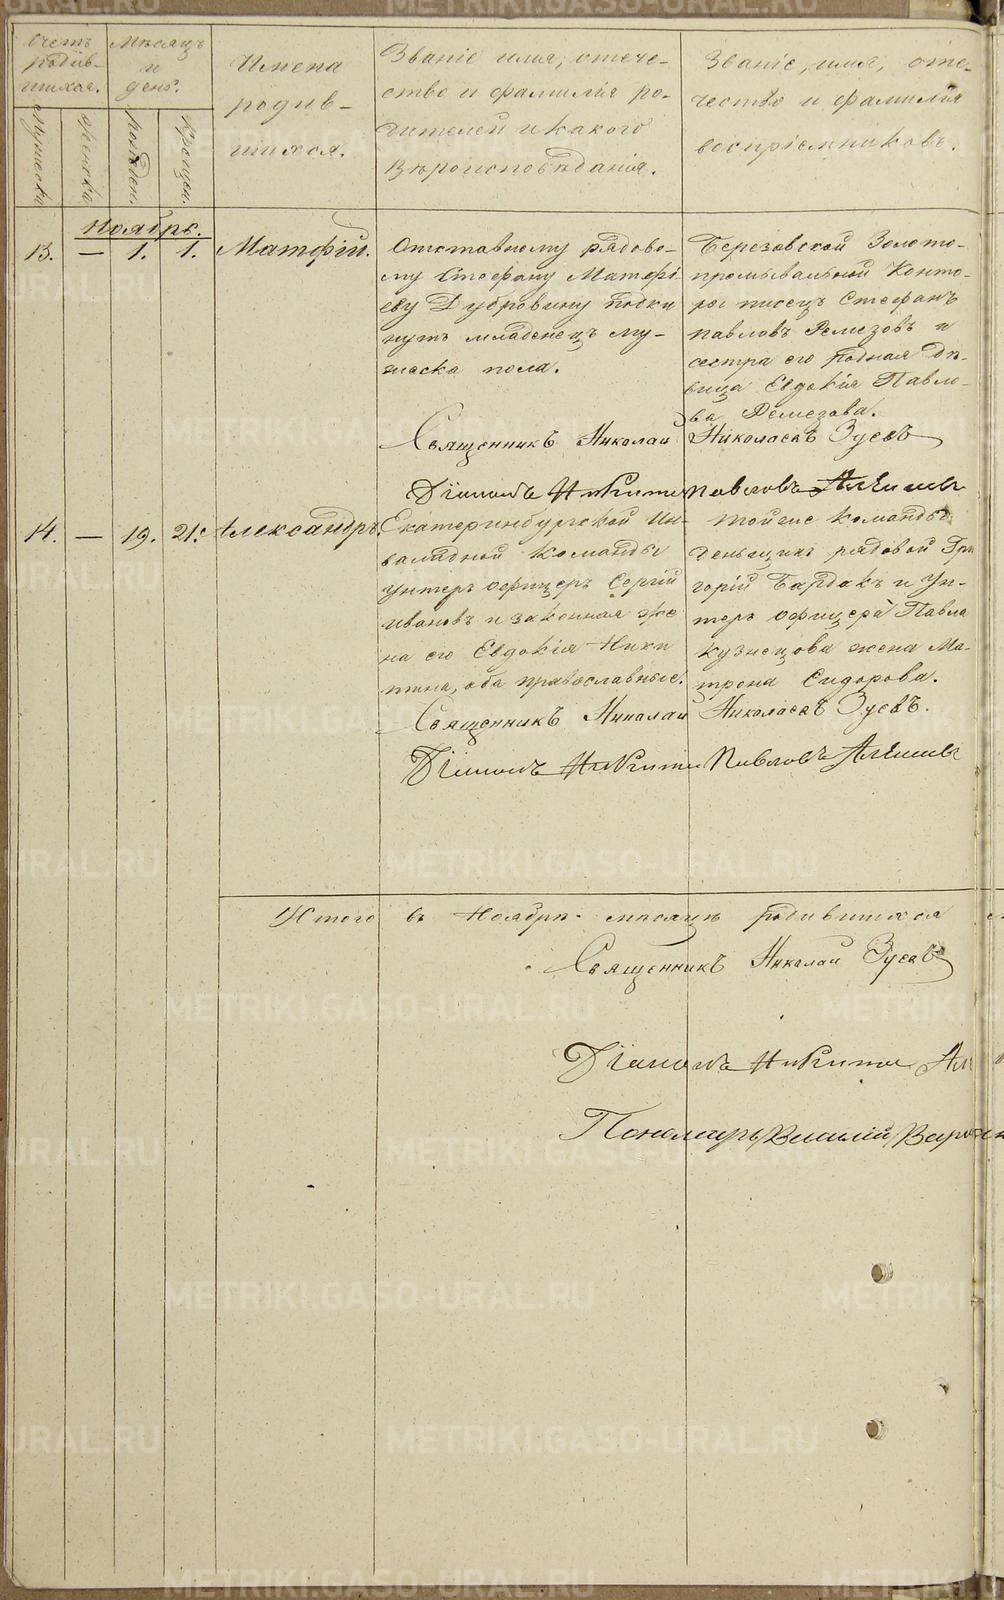 Счетъ родив- шихся.
Мѣсяцъ и день.
Имена родив- шихся.
Званіе имя, отече-
ство и фамилія ро-
дителей и какого
вѣроисповѣданія.
Званіе, имя, оте-
чество и фамилія
воспріемниковъ.
Мужеска
Женска
Рожден.
Крещен.
Ноябрь.
13. — 1. 1. Матфій.
Отставному рядово-
му Стефану Матфѣ-
еву Дубровину подки
нутъ младенецъ му-
жеска пола.
Березовской Золото-
промывальной Конто-
ры писецъ Стефанъ
Павловъ Ремезовъ и
сестра его родная дѣ-
вица Евдокія Павло-
ва Ремезова.
Священникъ Николай Николаевъ Зуевъ
Діаконъ Никита Павловъ
14. — 19. 21. Александръ.
Екатеринбургской Ин-
валидной Команды
унтеръ офицеръ Сергій
Ивановъ и законная же
на его Евдокія Ники
тина, оба православные.
Тойже команды
деньщикъ рядовой Гри
горій Байдакъ и ун-
теръ офицера Павла
Кузнецова жена Ма-
трона Сидорова.
Священникъ Николай Николаевъ Зуевъ.
Діаконъ Никита Павловъ
Итого въ Ноябрѣ мѣсяцѣ родившихся
Священникъ Николай Зуевъ
Діаконъ Никита
Пономарь Василій
METRIKI.GASO-URAL.RU